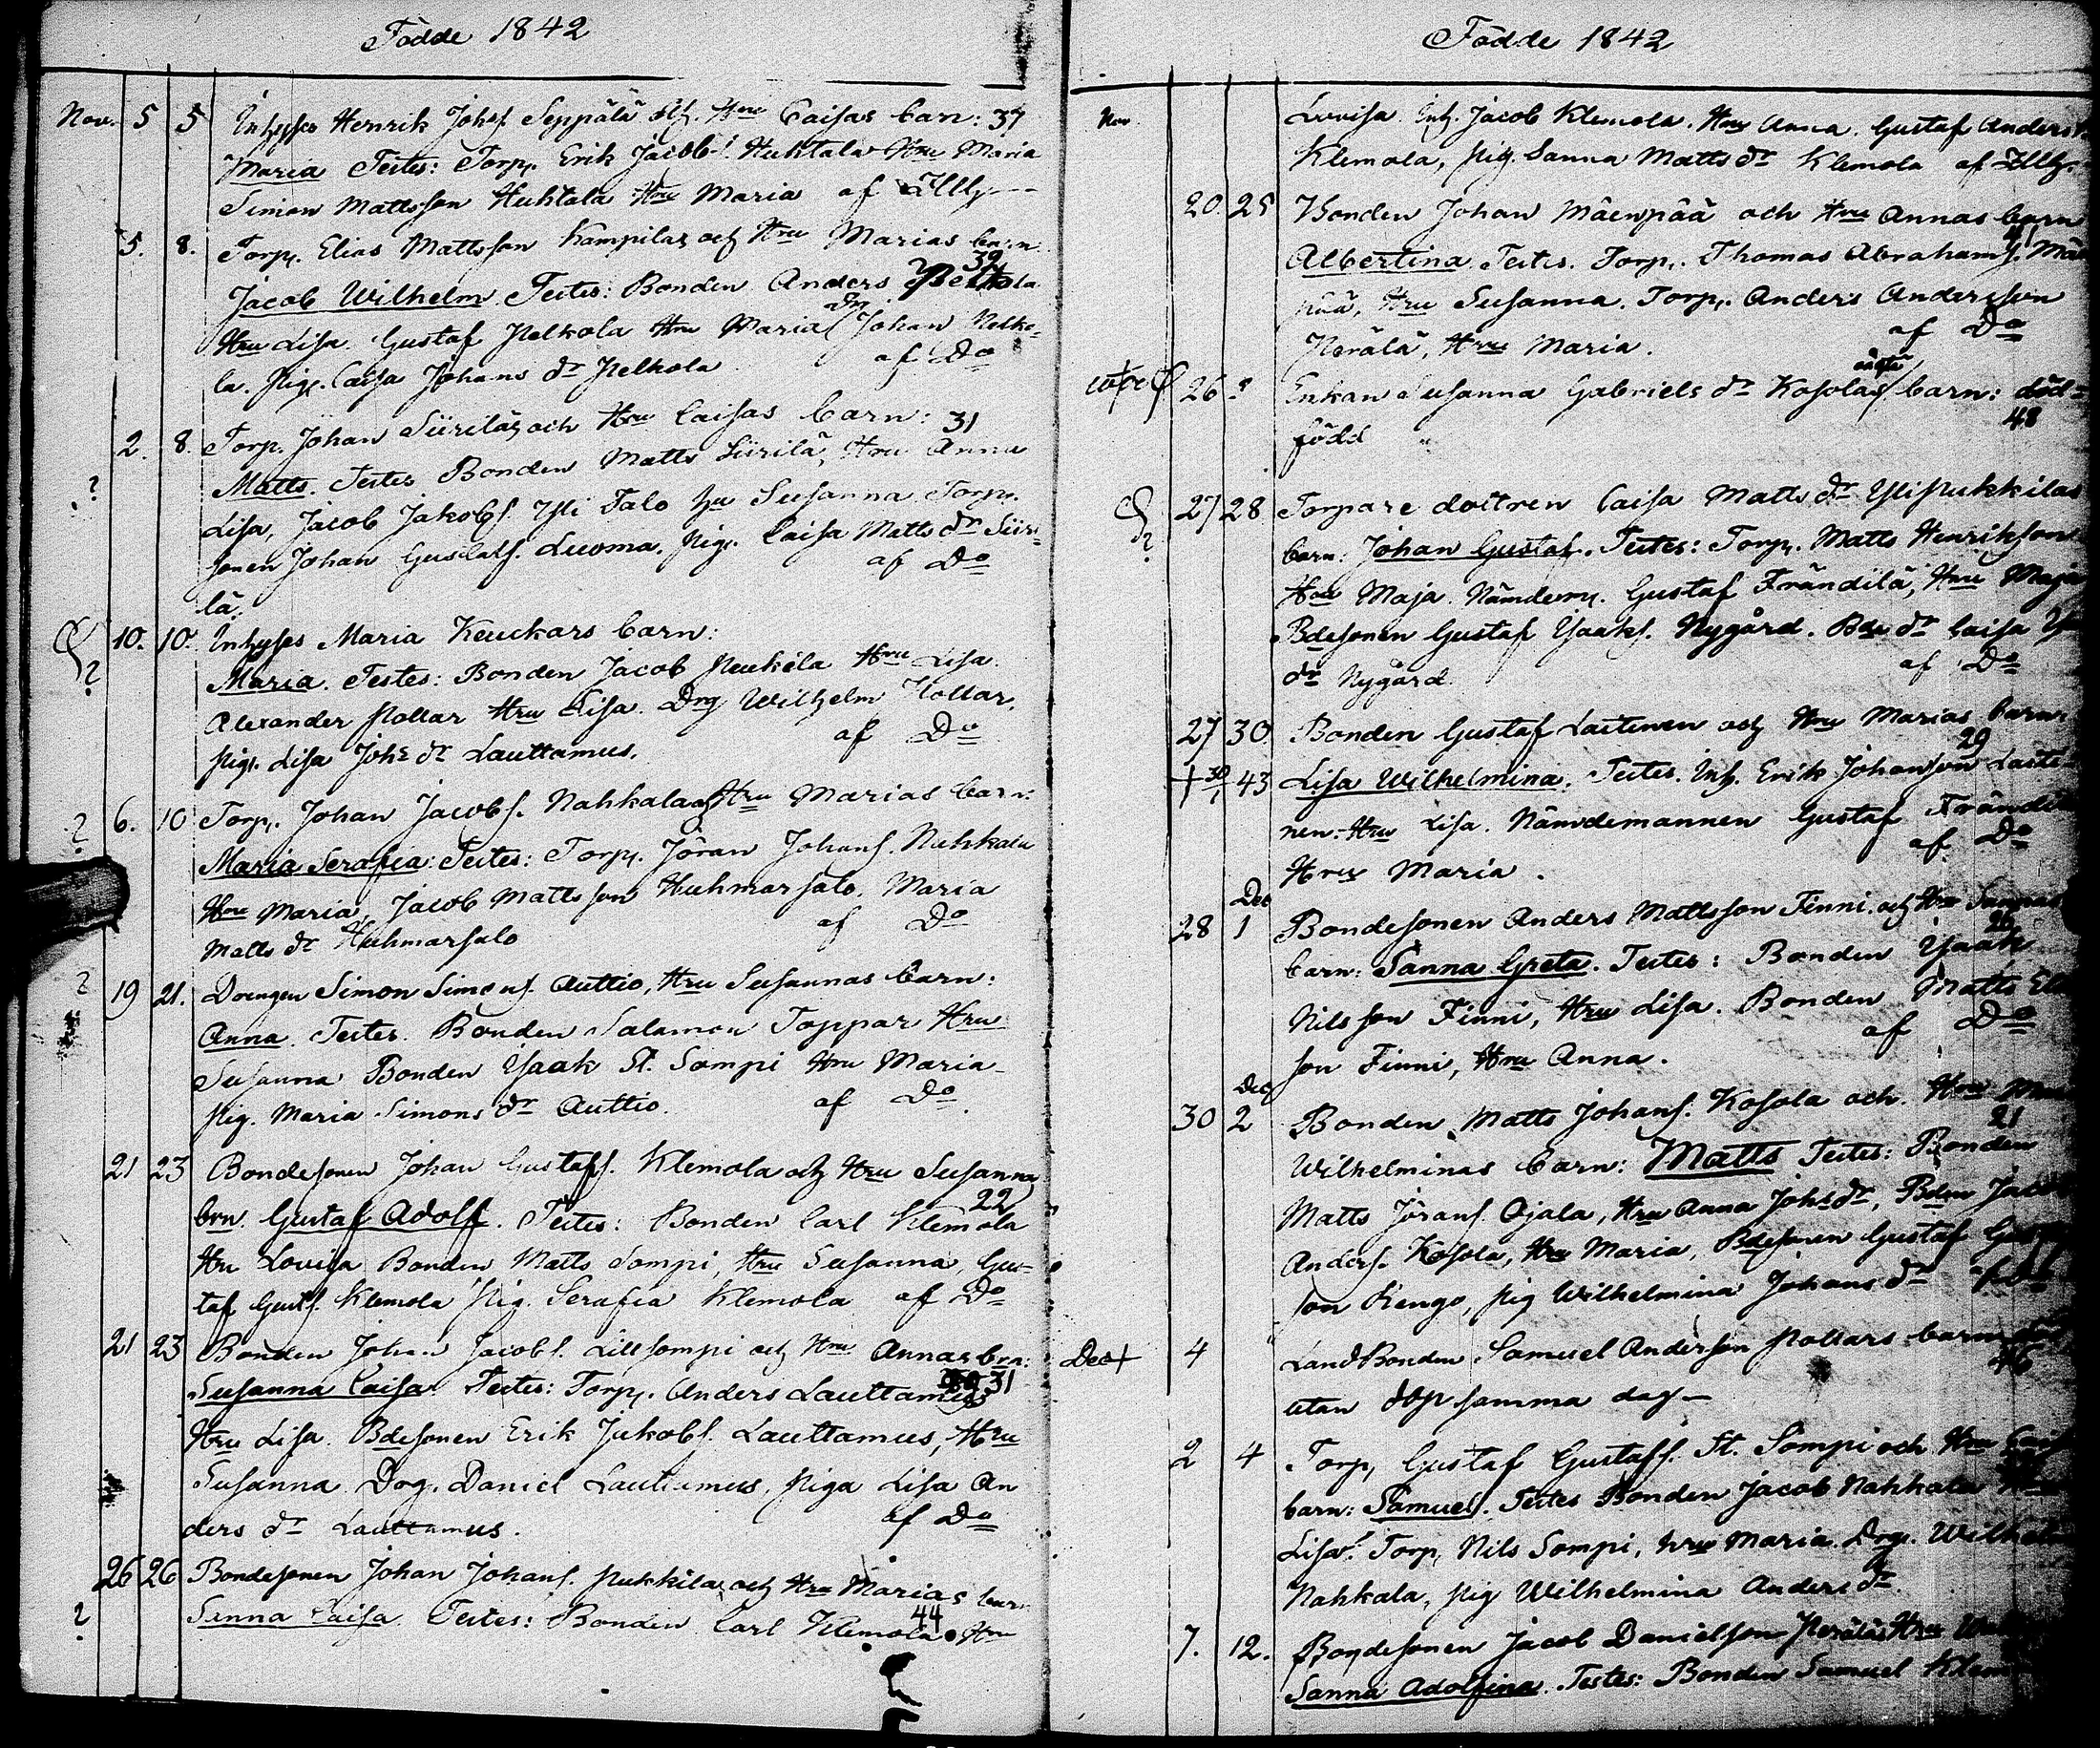 Födde 1842
Nov. 5 5 Inhyses Henrik Johsf Seppälä och Hru Caisas barn: 37
Maria Testes: Torp. Erik Jacobs. Huhtala Hru Maria
Simon Mattsson Huhtala Hru Maria af Illy
5. 8. Torp. Elias Mattsson Kampilas och Hru Marias barn
39
Jacob Wilhelm. Testes: Bonden Anders Pelkola
Hru Lisa. Gustaf Pelkola Hru Maria Drg Johan Pelko-
la. Pig. Caisa Johans dr Pelkola af Do
2. 8. Torp. Johan Siirilas och Hru Caisas barn: 31
? Matts. Testes Bonden Matts Siirilä, Hru Anna
Lisa, Jacob Jakobs. Yli Talo hu Susanna Torp.
sonen Johan Gustafs. Luoma. Pig. Caisa Matts dr Siiri-
lä. af Do
10. 10. Inhyses Maria Keuckars barn:
? Maria. Testes: Bonden Jacob Peukila Hru Lisa.
Alexander Pollar Hru Lisa. Drg Wilhelm Pollar,
Pig. Lisa Johs dr Lauttamus. af Do
? 6. 10 Torp. Johan Jacobs. Nahkala och Hru Marias barn:
Maria Serafia: Testes: Torp. Jöran Johans. Nahkala
Hru Maria, Jacob Mattsson Huhmarsalo. Maria
Matts dr Huhmarsalo af Do
? 19 21. Drengen Simon Simons. Auttio, Hru Susannas barn:
Anna. Testes. Bonden Salamon Toppar Hru
Susanna Bonden Ysaak St. Sompi Hru Maria
Pig. Maria Simons dr Auttio. af Do
21 23 Bondesonen Johan Gustafs. Klemola och Hru Susannas
22
brn Gustaf Adolf. Testes: Bonden Carl Klemola
Hru Lovisa Bonden Matts Sompi, Hru Susanna, Gus-
taf Gusts. Klemola Pig. Serafia Klemola af Do
21 23 Bonden Johan Jacobs. Lillsompi och Hru Annas brn:
31
Susanna Caisa Testes: Torp. Anders Lauttamus
Hru Lisa. Bdesonen Erik Jakobs. Lauttamus, Hru
Susanna. Drg. Daniel Lauttamus, Piga Lisa An
ders dr Lauttamus. af Do
26 26 Bondesonen Johan Johans. Pukkilas och Hru Marias barn
44
? Sanna Caisa. Testes: Bonden Carl Klemola Hru

Födde 1842
Nov. Lovisa. Inh. Jacob Klemola. Hru Anna. Gustaf Anders
Klemola, Pig. Sanna Matts dr Klemola af Illy.
20 25 Bonden Johan Mäenpää och Hru Annas barn
41
Albertina. Testes. Torp. Thomas Abrahams. Mäen
pää, Hru Susanna. Torp. Anders Andersson
Perälä, Hru Maria. af Do
26 Enkan Susanna Gabriels dr Kosolas oägta barn: död-
född 48
? 27 28 Torpare dottren Caisa Matts dr Ylipukkilas
barn: Johan Gustaf. Testes: Torp. Matts Henriksson
Hru Maja. Nämdem. Gustaf Frändilä, Hru Maja
Bdesonen Gustaf Ysaaks. Nygård. Bde dr Caisa
dr Nygård. af Do
27 30 Bonden Gustaf Lastenen och Hru Marias barn:
29
+ 30/1 43 Lisa Wilhelmina. Testes. Inh. Erik Johansson Laste-
nen. Hru Lisa. Nämdemannen Gustaf Frändilä
Hru Maria. af Do
Dec
28 1 Bondesonen Anders Mattsson Finni och Hru Sannas
26
barn: Sanna Greta. Testes: Bonden Ysaak
Nilsson Finni, Hru Lisa. Bonden Matts
son Finni, Hru Anna. af Do
Dec
30 2 Bonden Matts Johans. Kosola och Hru
21
Wilhelminas barn: Matts Testes: Bonden
Matts Jörans. Ojala, Hru Anna Johs dr, Bden Jacob
Anders. Kosola, Hru Maria, Bdesonen Gustaf
son Rengo, Pig Wilhelmina Johans dr
Dec + 4 Landbonden Samuel Andersson Pollars barn död
46
utan dop samma dag—
2 4 Torp. Gustaf Gustafs. St. Sompi och Hru
barn: Samuel. Testes Bonden Jacob Nahkala
Lisa. Torp. Nils Sompi, hru Maria. Drg. Wilhelm
Nahkala, Pig Wilhelmina Anders dr.
7. 12. Bondesonen Jacob Danielsson Peräläs Hru
Sanna Adolfina. Testes: Bonden Samuel